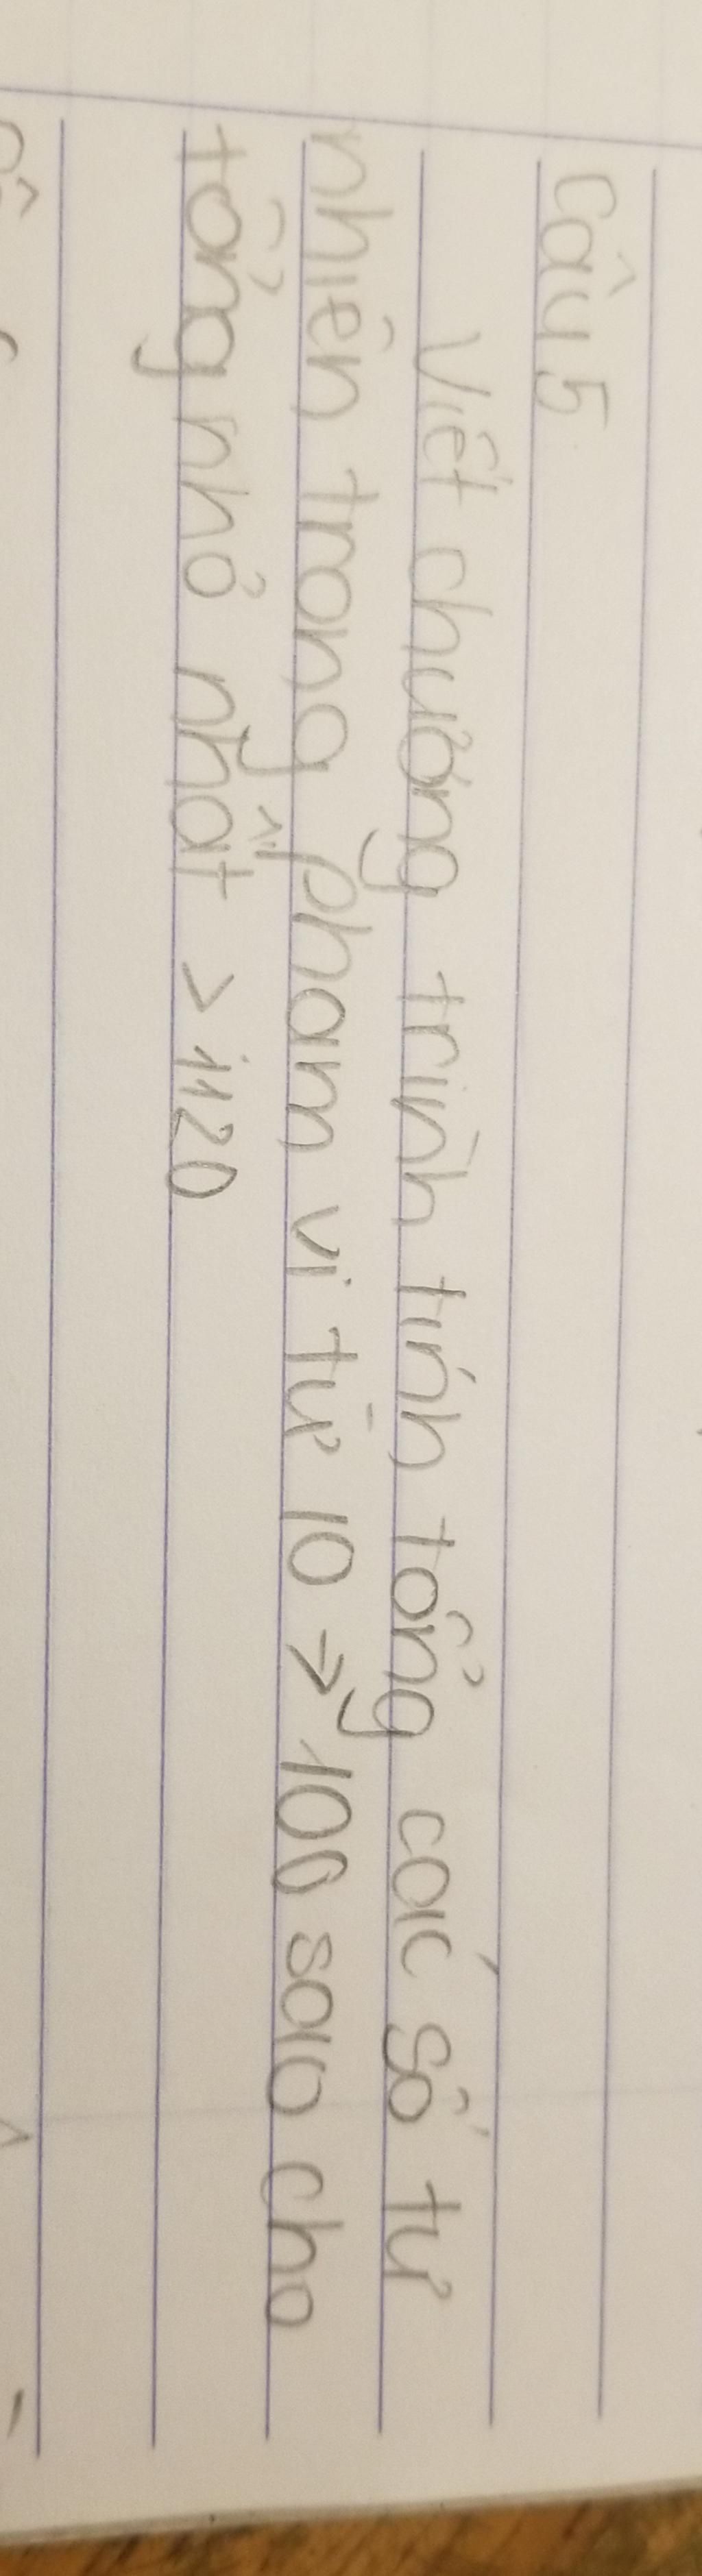 Câu 5
Viết chương trình tính tổng các số tự
nhiên trong phạm vi từ 10 → 100 sao cho
tổng nhỏ nhất > 1120